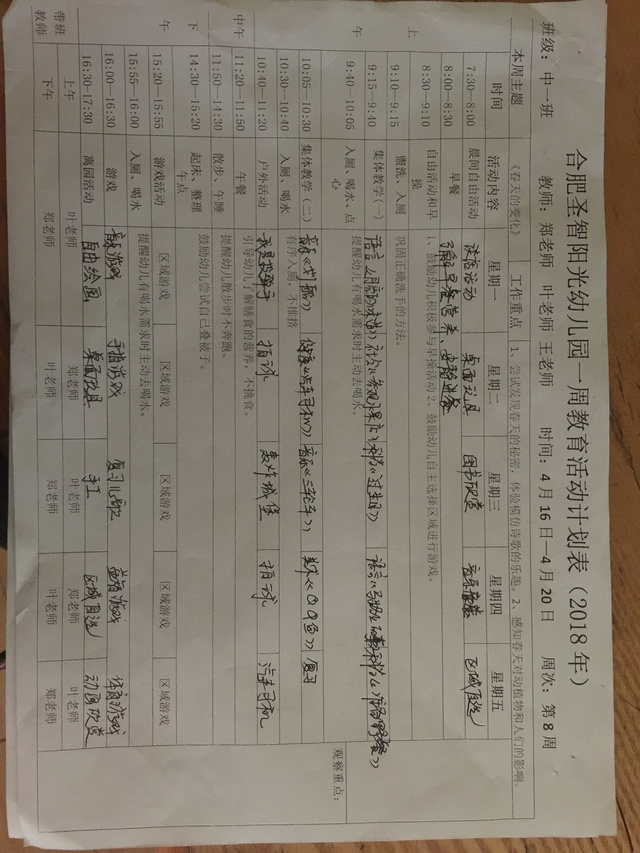 合肥圣智阳光幼儿园一周教育活动计划表（2018 年）
班级：中一班 教师：郑老师 叶老师 王老师 时间：4 月 16 日—4 月 20 日 周次：第 8 周
本周主题 《春天的变化》 工作重点 1、尝试发现春天的秘密，体验模仿诗歌的乐趣。2、感知春天对动植物和人们的影响。
时间 活动内容 星期一 星期二 星期三 星期四 星期五
上午
7:30—8:00 晨间自由活动 谈话活动 桌面玩具 图书欣赏 音乐 区域自选
8:00—8:30 早餐 了解早餐营养、安静进餐
8:30—9:10 自由活动和早操 1、鼓励幼儿积极参与早操活动 2、鼓励幼儿自主选择区域进行游戏。
9:10—9:15 盥洗、入厕 巩固正确洗手的方法。
9:15—9:40 集体教学(一) 语言 社会 科学《过生日》 语言 科学
9:40—10:05 入厕、喝水、点心 提醒幼儿有喝水需求时主动去喝水。
10:05—10:30 集体教学（二） 音乐《划船》 健康《汽车司机》 音乐《三轮车》 美术 复习
10:30—10:40 入厕、喝水 有序入厕，不推挤
10:40—11:20 户外活动 我是投弹手 拍球 轰炸城堡 拍球 汽车司机
中午
11:20—11:50 午餐 引导幼儿了解膳食的营养，不挑食。
11:50—14:30 散步、午睡 提醒幼儿散步时不奔跑。
下午
14:30—15:20 起床、整理 午点 鼓励幼儿尝试自己叠被子。
15:20—15:55 游戏活动 区域游戏 区域游戏 区域游戏 区域游戏 区域游戏
15:55—16:00 入厕、喝水 提醒幼儿有喝水需求时主动去喝水。
16:00—16:30 游戏 音乐游戏 手指游戏 复习儿歌 益智游戏 体育游戏
16:30—17:30 离园活动 自由绘画 桌面玩具 手工 区域自选 动画欣赏
带班教师 上午 叶老师 郑老师 叶老师 郑老师 叶老师
下午 郑老师 叶老师 郑老师 叶老师 郑老师
观察重点：